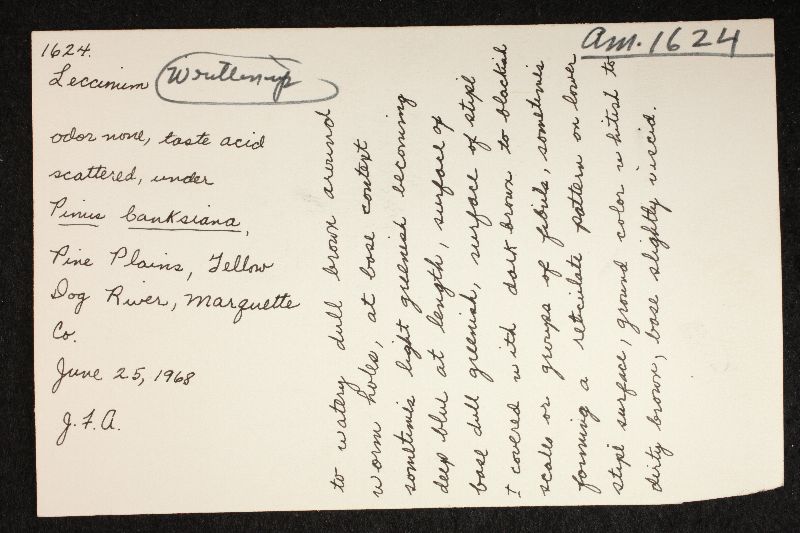 1624.
Leccinum
Written up
Am. 1624
odor none, taste acid
scattered, under
Pinus banksiana,
Pine Plains, Yellow
Dog River, Marquette
Co.
June 25, 1968
J.F.A.
to watery dull brown around
worm holes, at base context
sometimes light greenish becoming
deep blue at length, surface of
base dull greenish, surface of stipe
I covered with dark brown to blackish
scales or groups of fibrils, sometimes
forming a reticulate pattern on lower
stipe surface, ground color whitish to
dirty brown, base slightly viscid.